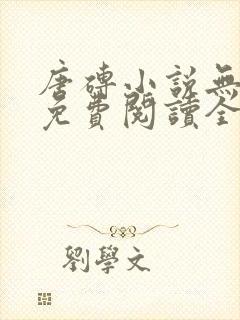 唐磚小說無
免費閱讀全
劉學文